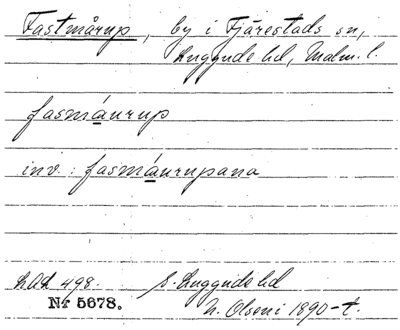 Fastmårup, by i Fjärestads sn,
Luggude hd, Malm. l.
fasmáurup
inv.: fasmáurupana
LAL 498.
S. Luggude hd
Nr 5678.
N. Olséni 1890-t.